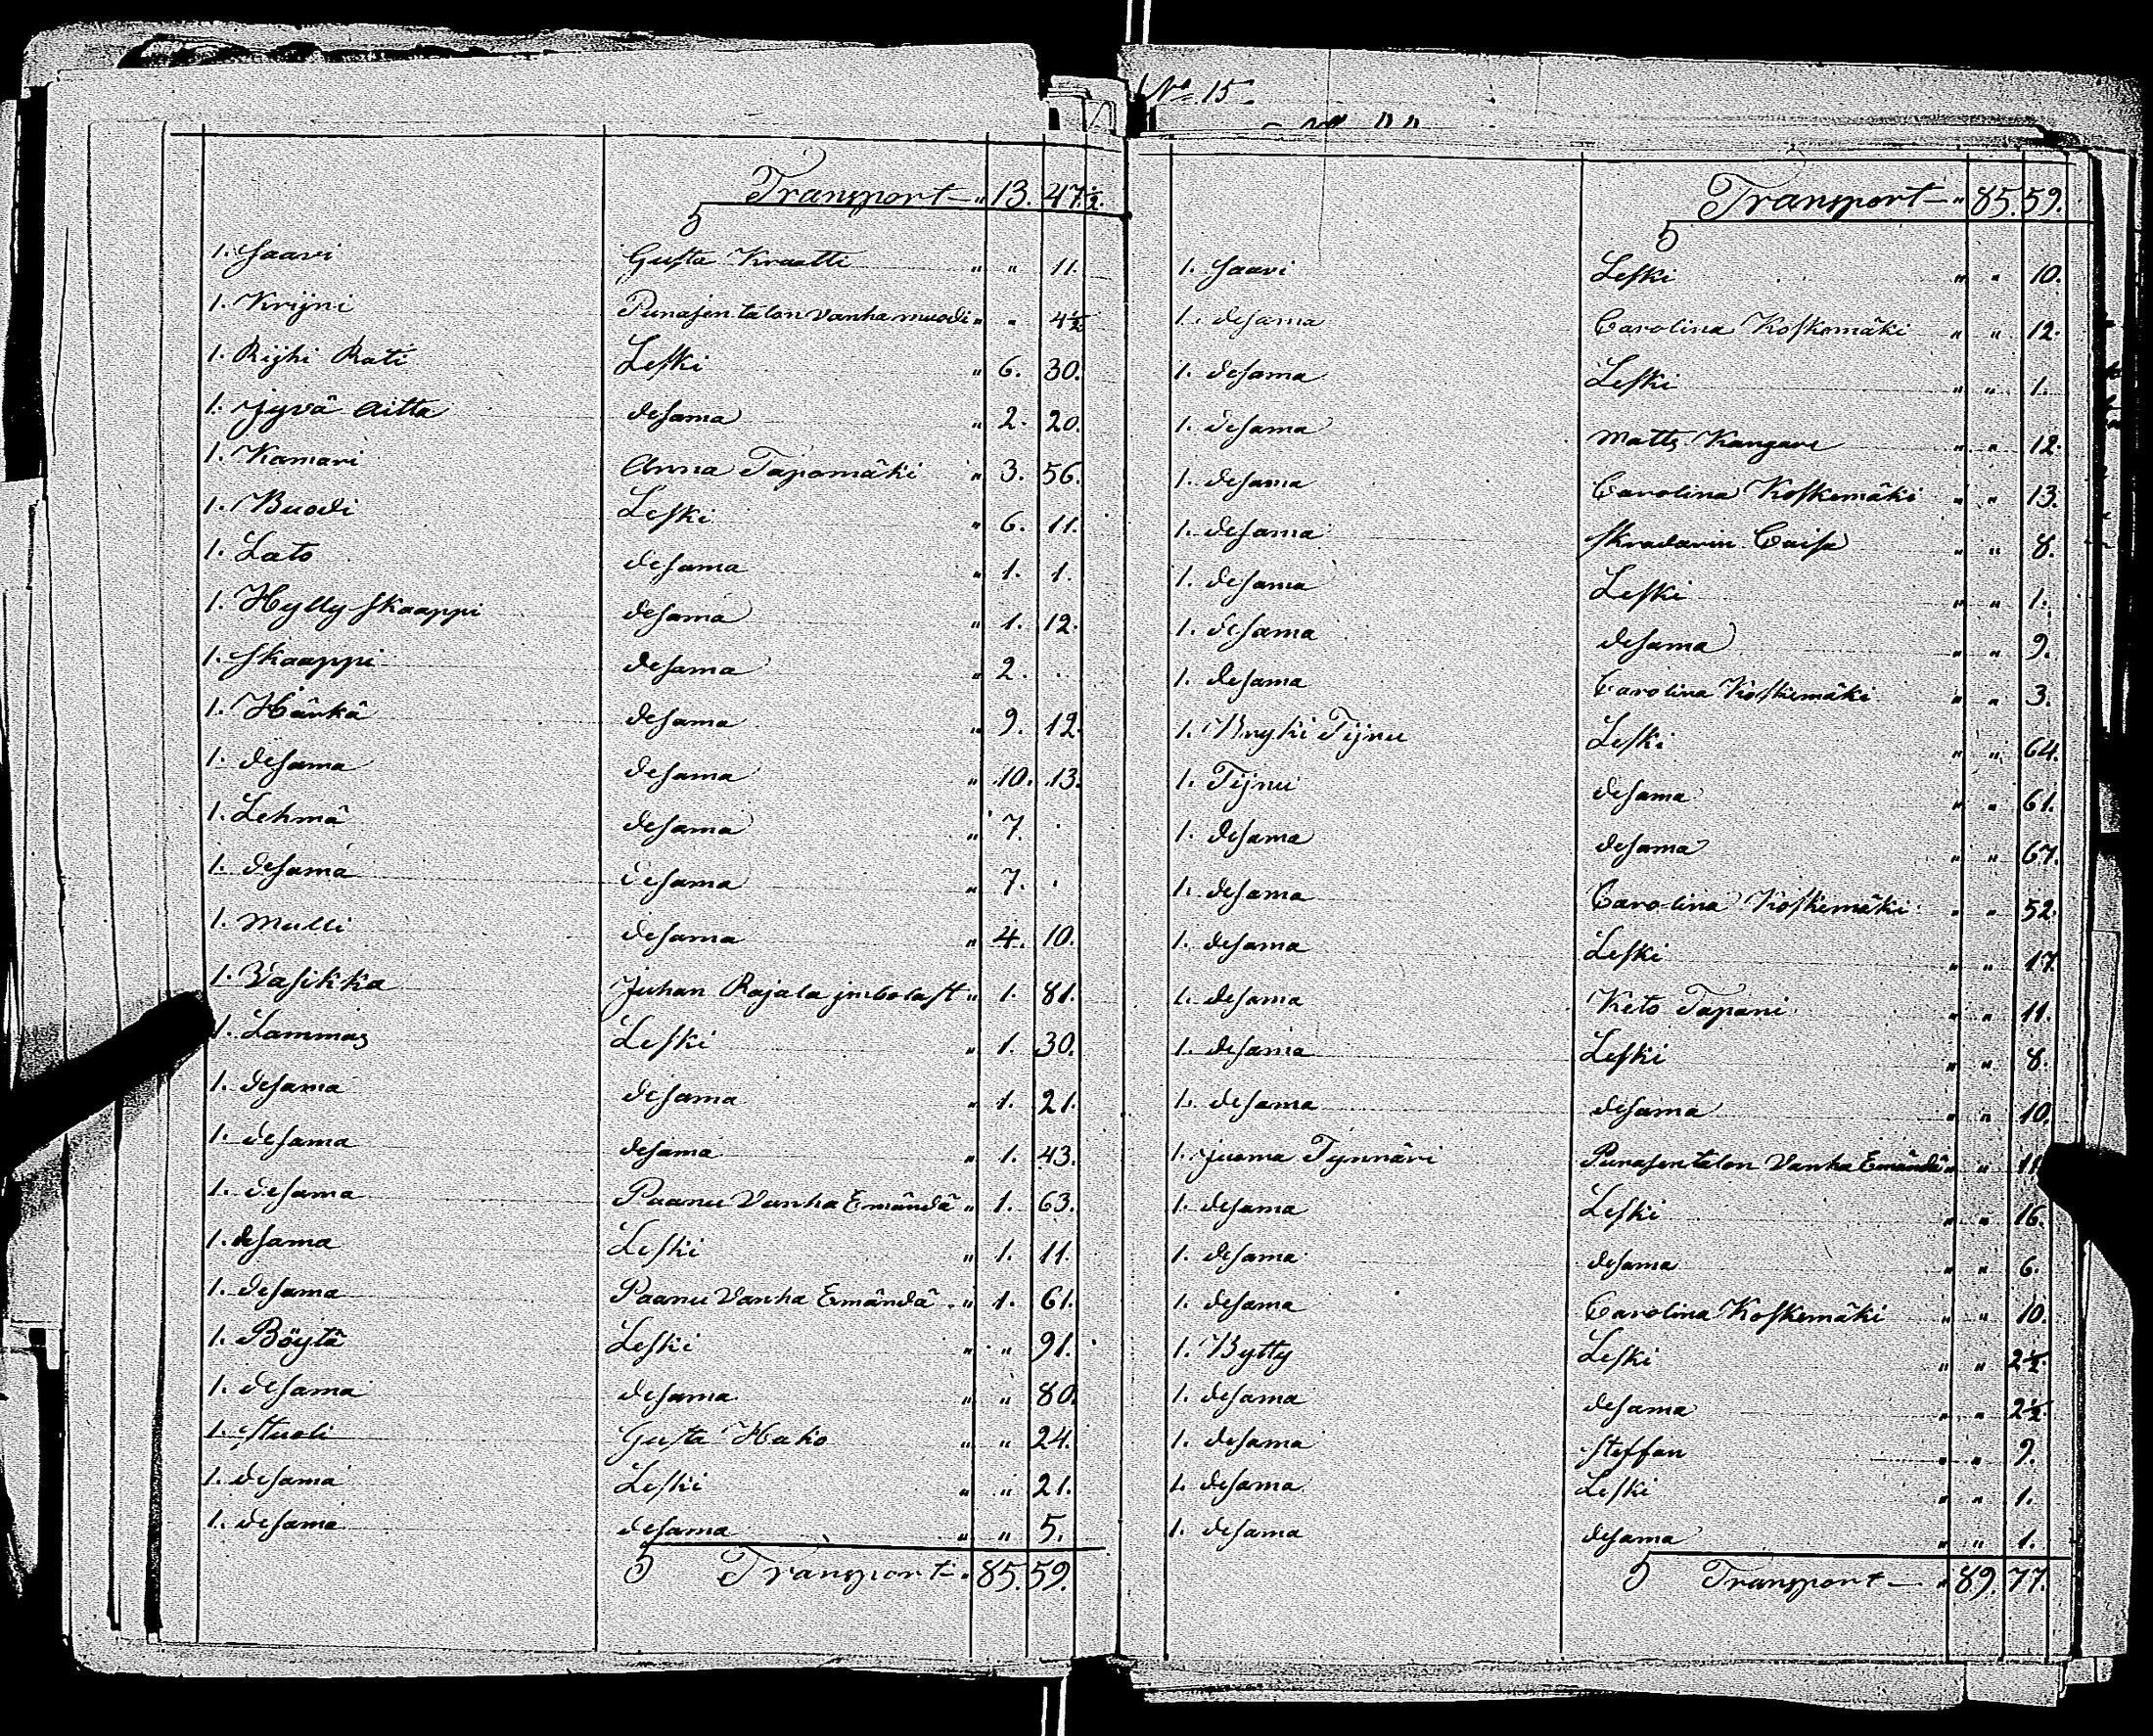 Transport - " 13. 47 1/2.
1. Saavi Gusta Kraatti " " 11.
1. Krijni Punasen talon vanha muori " " 4 1/2
1. Rijhi Rati Leski " 6. 30.
1. Jyvä Aitta desama " 2. 20.
1. Kamari Anna Tapomäki " 3. 56.
1. Buodi Leski " 6. 11.
1. Lato desama " 1. 1.
1. Hylly skaappi desama " 1. 12.
1. Skaappi desama " 2. .
1. Härkä desama " 9. 12.
1. desama desama " 10. 13.
1. Lehmä desama " 7. .
1. desama desama " 7. .
1. Mulli desama " 4. 10.
1. Vasikka Juhan Rajala " 1. 81.
1. Lammas Leski " 1. 30.
1. desama desama " 1. 21.
1. desama desama " 1. 43.
1. desama Paanu Vanha Emändä " 1. 63.
1. desama Leski " 1. 11.
1. desama Paanu Vanha Emändä " 1. 61.
1. Böytä Leski " " 91.
1. desama desama " " 80.
1. stuoli Gusta Hako " " 24.
1. desama Leski " " 21.
1. desama desama " " 5.
Transport - " 85. 59.
No 15.
Transport - " 85. 59.
1. Saavi Leski " " 10.
1. desama Carolina Koskemäki " " 12.
1. desama Leski " " 1.
1. desama Matts Kangare " " 12.
1. desama Carolina Koskemäki " " 13.
1. desama Skradarin Caisa " " 8.
1. desama Leski " " 1.
1. desama desama " " 9.
1. desama Carolina Koskemäki " " 3.
1. Bryki Tijnu Leski " " 64.
1. Tijnu desama " " 61.
1. desama desama " " 67.
1. desama Carolina Koskemäki " " 52.
1. desama Leski " " 17.
1. desama Keto Tapani " " 11.
1. desama Leski " " 8.
1. desama desama " " 10.
1. Juoma Tynnäri Punasen talon Vanha Emändä " " 11
1. desama Leski " " 16.
1. desama desama " " 6.
1. desama Carolina Koskemäki " " 10.
1. Bytty Leski " " 2 1/2.
1. desama desama " " 2 1/2.
1. desama Steffan " " 9.
1. desama Leski " " 1.
1. desama desama " " 1.
Transport - " 89. 77.